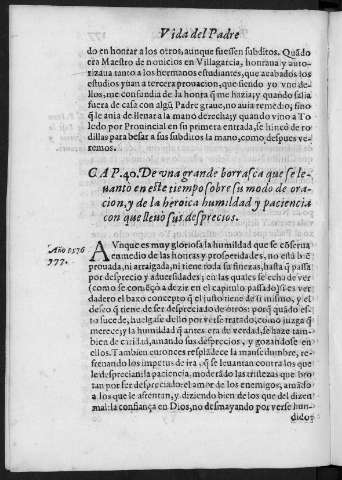 Vida del Padre
do en honrar a los otros, aunque fuessen subditos. Quãdo
era Maestro de nouicios en Villagarcia, honraua y auto-
rizaua tanto a los hermanos estudiantes, que acabados los
estudios yuan a tercera prouacion, que siendo yo vno de-
llos, me confundia de la honra q̃ me hazia; y quando salia
fuera de casa con algũ Padre graue, no auia remedio, sino
q̃ le auia de lleuar a la mano derecha; y quando vino a To-
ledo por Prouincial en su primera entrada, se hincò de ro-
dillas para besar a sus subditos la mano, como despues ve-
remos.
CAP. 40. De vna grande borrasca que se le-
uanto en este tiempo sobre su modo de ora-
cion, y de la heroica humildad y paciencia
con que lleuò sus desprecios.
Año 1576
777.
AVnque es muy gloriosa la humildad que se cõserua
en medio de las honras y prosperidades, no està biẽ
prouada, ni arraigada, ni tiene toda su fineza, hasta q̃ passa
por desprecios y aduersidades; en las quales se echo de ver
(como se comẽçò a dezir en el capitulo passado) si es ver
dadero el baxo concepto q̃ el justo tiene de si mismo, y el
deseo q̃ tiene de ser despreciado de otros: porq̃ quãdo es-
to sucede, huelgase dello por verse tratado, como juzga q̃
merece; y la humildad q̃ antes era de verdad, se haze tam-
bien de caridad, amando sus desprecios, y gozandose en
ellos. Tambien entonces resplãdece la mansedumbre, re-
frenando los impetus de ira, q̃ se leuantan contra los que
le desprecian: la paciencia, moderãdo las tristezas que bro
tan por ser despreciado: el amor de los enemigos, amãdo
a los que le afrentan, y diziendo bien de los que del dizen
mal: la confiança en Dios, no desmayando por verse hun-
dido: